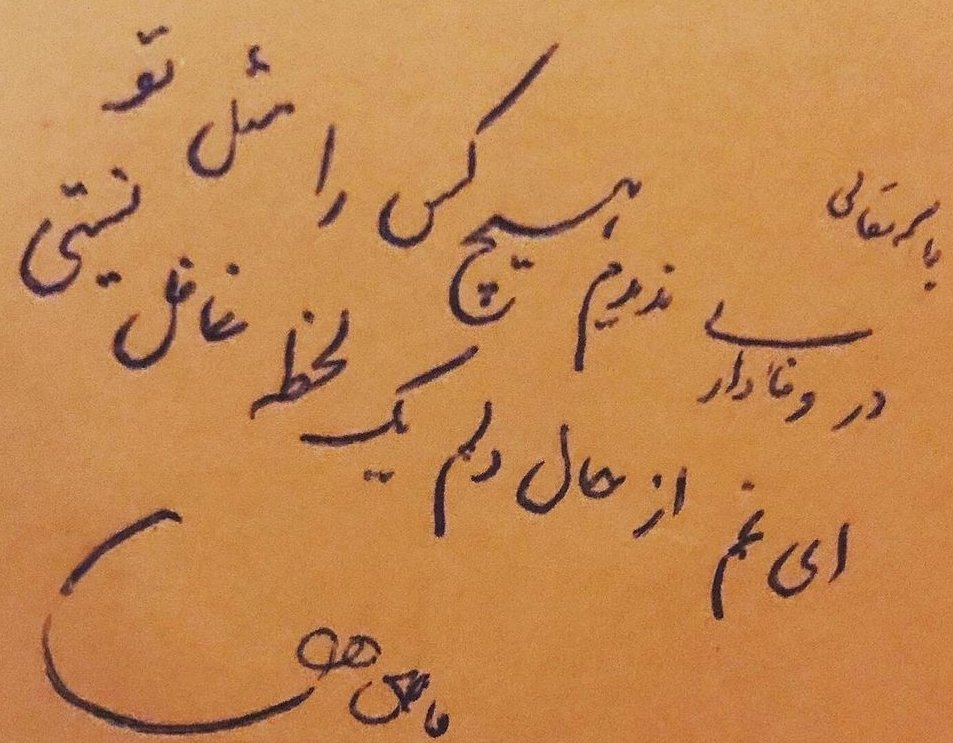 باسمه تعالی
در وفاداری ندیدم هیچ کس را مثل تو
ای غم از حال دلم یک لحظه غافل نیستی